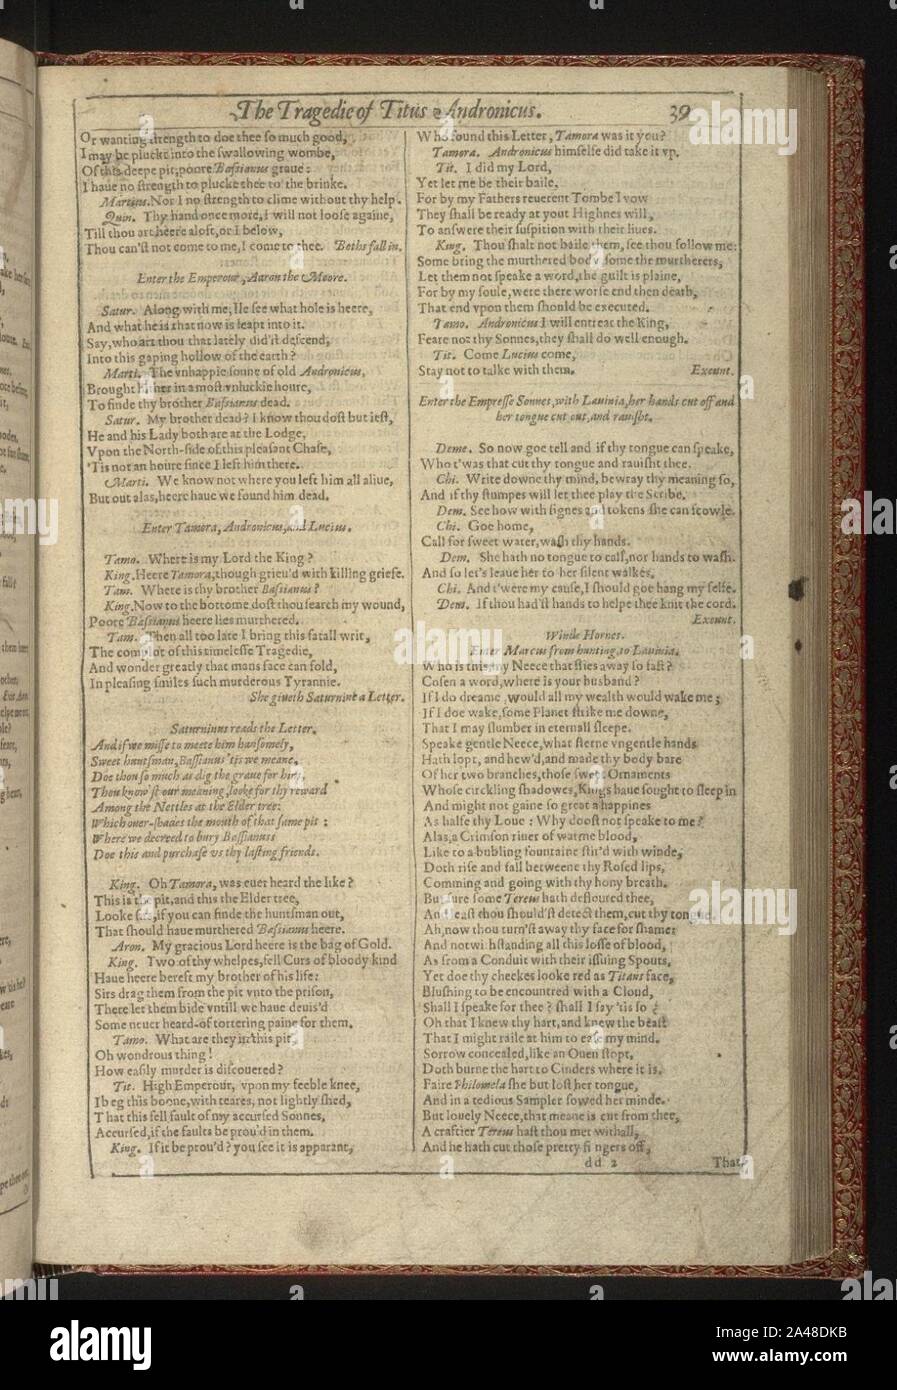 The Tragedie of Titus Andronicus. 39
Or wanting strength to doe thee so much good,
I may be pluckt into the swallowing wombe,
Of this deepe pit, poore Bassianus graue:
I haue no strength to plucke thee to the brinke.
Martius. Nor I no strength to clime without thy help.
Quin. Thy hand once more, I will not loose againe,
Till thou art heere aloft, or I below,
Thou can'st not come to me, I come to thee. Boths fall in.
Enter the Emperour, Aaron the Moore.
Satur. Along with me, Ile see what hole is heere,
And what he is that now is leapt into it.
Say, who art thou that lately did'st descend,
Into this gaping hollow of the earth?
Marti. The vnhappie sonne of old Andronicus,
Brought hither in a most vnluckie houre,
To finde thy brother Bassianus dead.
Satur. My brother dead? I know thou dost but iest,
He and his Lady both are at the Lodge,
Vpon the North-side of this pleasant Chase,
'Tis not an houre since I left him there.
Marti. We know not where you left him all aliue,
But out alas, heere haue we found him dead.
Enter Tamora, Andronicus, and Lucius.
Tamo. Where is my Lord the King?
King. Heere Tamora, though grieu'd with killing griefe.
Tam. Where is thy brother Bassianus?
King. Now to the bottome dost thou search my wound,
Poore Bassianus heere lies murthered.
Tam. Then all too late I bring this fatall writ,
The complot of this timelesse Tragedie,
And wonder greatly that mans face can fold,
In pleasing smiles such murderous Tyrannie.
She giueth Saturnine a Letter.
Saturninus reads the Letter.
And if we misse to meete him hansomely,
Sweet huntsman, Bassianus 'tis we meane,
Doe thou so much as dig the graue for him,
Thou know'st our meaning, looke for thy reward
Among the Nettles at the Elder tree:
Which ouer-shades the mouth of that same pit:
Where we decreed to bury Bassianuss
Doe this and purchase vs thy lasting friends.
King. Oh Tamora, was euer heard the like?
This is the pit, and this the Elder tree,
Looke sirs, if you can finde the huntsman out,
That should haue murthered Bassianus heere.
Aron. My gracious Lord heere is the bag of Gold.
King. Two of thy whelpes, fell Curs of bloody kind
Haue heere bereft my brother of his life:
Sirs drag them from the pit vnto the prison,
There let them bide vntill we haue deuis'd
Some neuer heard-of tortering paine for them.
Tamo. What are they in this pit,
Oh wondrous thing!
How easily murder is discouered?
Tit. High Emperour, vpon my feeble knee,
I beg this boone, with teares, not lightly shed,
That this fell fault of my accursed Sonnes,
Accursed, if the faults be prou'd in them.
King. If it be prou'd? you see it is apparant,
Who found this Letter, Tamora was it you?
Tamora. Andronicus himselfe did take it vp.
Tit. I did my Lord,
Yet let me be their baile,
For by my Fathers reuerent Tombe I vow
They shall be ready at yout Highnes will,
To answere their suspition with their liues.
King. Thou shalt not baile them, see thou follow me:
Some bring the murthered body, some the murtherers,
Let them not speake a word, the guilt is plaine,
For by my soule, were there worse end then death,
That end vpon them should be executed.
Tamo. Andronicus I will entreat the King,
Feare not thy Sonnes, they shall do well enough.
Tit. Come Lucius come,
Stay not to talke with them. Exeunt.
Enter the Empresse Sonnes, with Lauinia, her hands cut off and
her tongue cut out, and rauisht.
Deme. So now goe tell and if thy tongue can speake,
Who t'was that cut thy tongue and rauisht thee.
Chi. Write downe thy mind, bewray thy meaning so,
And if thy stumpes will let thee play the Scribe.
Dem. See how with signes and tokens she can scowle.
Chi. Goe home,
Call for sweet water, wash thy hands.
Dem. She hath no tongue to call, nor hands to wash.
And so let's leaue her to her silent walkes.
Chi. And t'were my cause, I should goe hang my selfe.
Dem. If thou had'st hands to helpe thee knit the cord.
Exeunt.
Winde Hornes.
Enter Marcus from hunting, to Lauinia.
Who is this, my Neece that flies away so fast?
Cosen a word, where is your husband?
If I do dreame, would all my wealth would wake me;
If I doe wake, some Planet strike me downe,
That I may slumber in eternall sleepe.
Speake gentle Neece, what sterne vngentle hands
Hath lopt, and hew'd, and made thy body bare
Of her two branches, those sweet Ornaments
Whose circkling shadowes, Kings haue sought to sleep in
And might not gaine so great a happines
As halfe thy Loue: Why doost not speake to me?
Alas, a Crimson riuer of warme blood,
Like to a bubling fountaine stir'd with winde,
Doth rise and fall betweene thy Rosed lips,
Comming and going with thy hony breath.
But sure some Tereus hath defloured thee,
And least thou should'st detect them, cut thy tongue.
Ah, now thou turn'st away thy face for shame:
And notwithstanding all this losse of blood,
As from a Conduit with their issuing Spouts,
Yet doe thy cheekes looke red as Titans face,
Blushing to be encountred with a Cloud,
Shall I speake for thee? shall I say 'tis so?
Oh that I knew thy hart, and knew the beast
That I might raile at him to ease my mind.
Sorrow concealed, like an Ouen stopt,
Doth burne the hart to Cinders where it is.
Faire Philomela she but lost her tongue,
And in a tedious Sampler sowed her minde.
But louely Neece, that meane is cut from thee,
A craftier Tereus hast thou met withall,
And he hath cut those pretty fingers off,
dd 2 That
alamy
Image ID: 2A48DKB
www.alamy.com